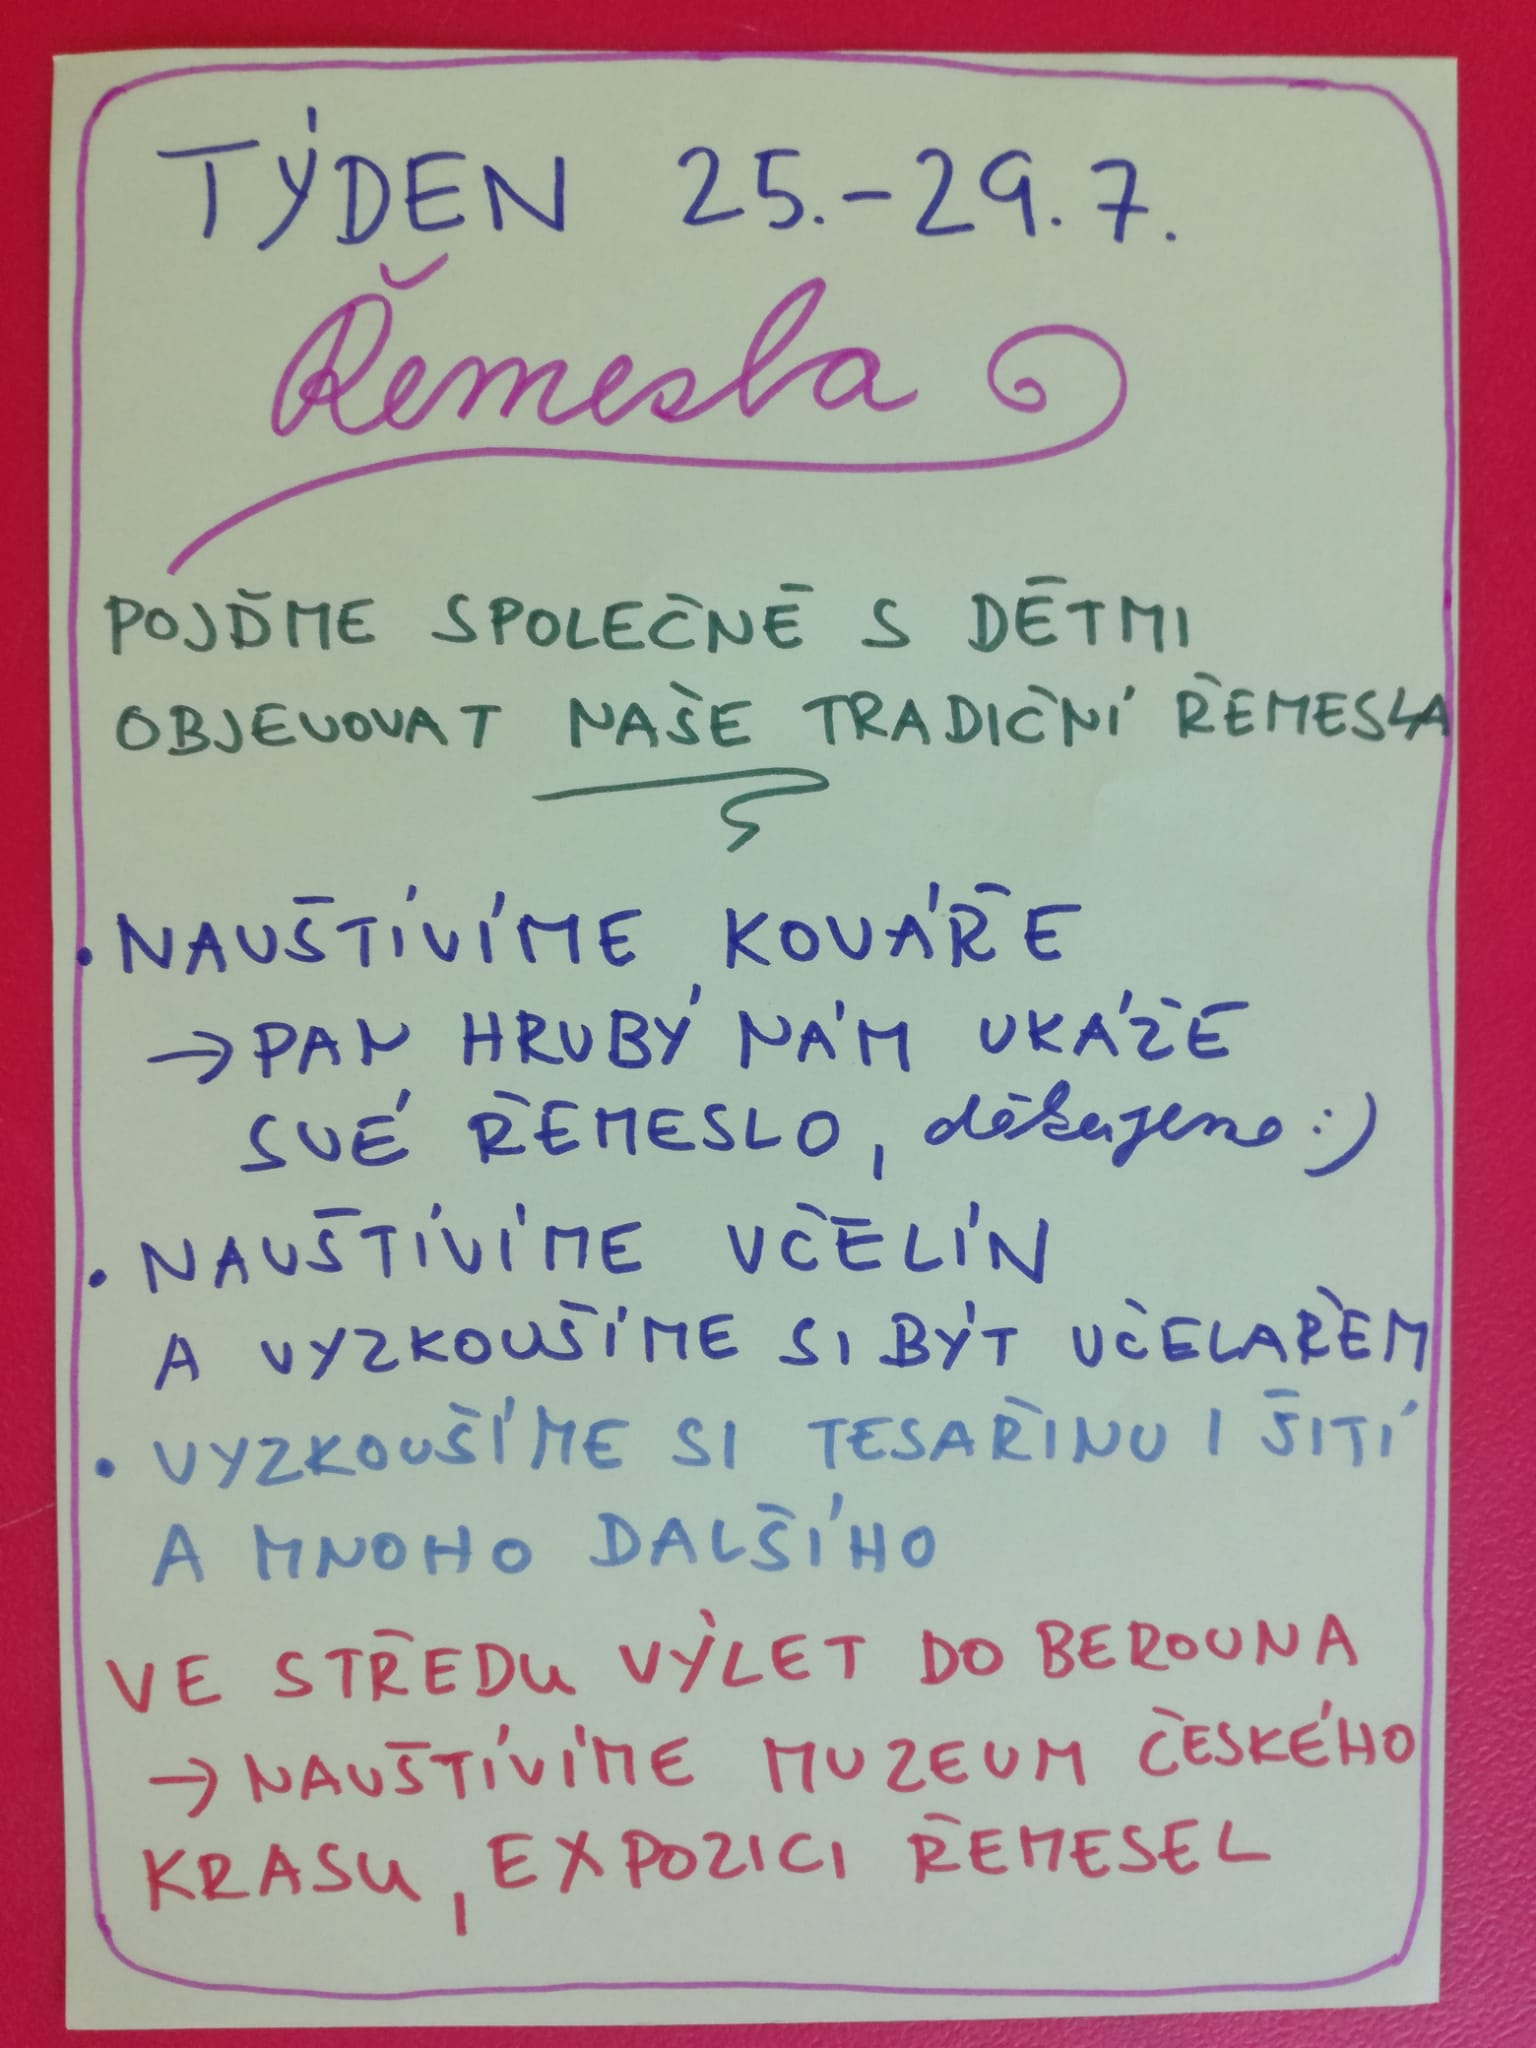 TÝDEN 25.-29.7.
Řemesla
POJĎME SPOLEČNĚ S DĚTMI
OBJEVOVAT NAŠE TRADIČNÍ ŘEMESLA
• NAVŠTÍVÍME KOVÁŘE
→ PAN HRUBÝ NÁM UKÁŽE
SVÉ ŘEMESLO, děkujeme :)
• NAVŠTÍVÍME VČELÍN
A VYZKOUŠÍME SI BÝT VČELAŘEM
• VYZKOUŠÍME SI TESAŘINU I ŠITÍ
A MNOHO DALŠÍHO
VE STŘEDU VÝLET DO BEROUNA
→ NAVŠTÍVÍME MUZEUM ČESKÉHO
KRASU, EXPOZICI ŘEMESEL